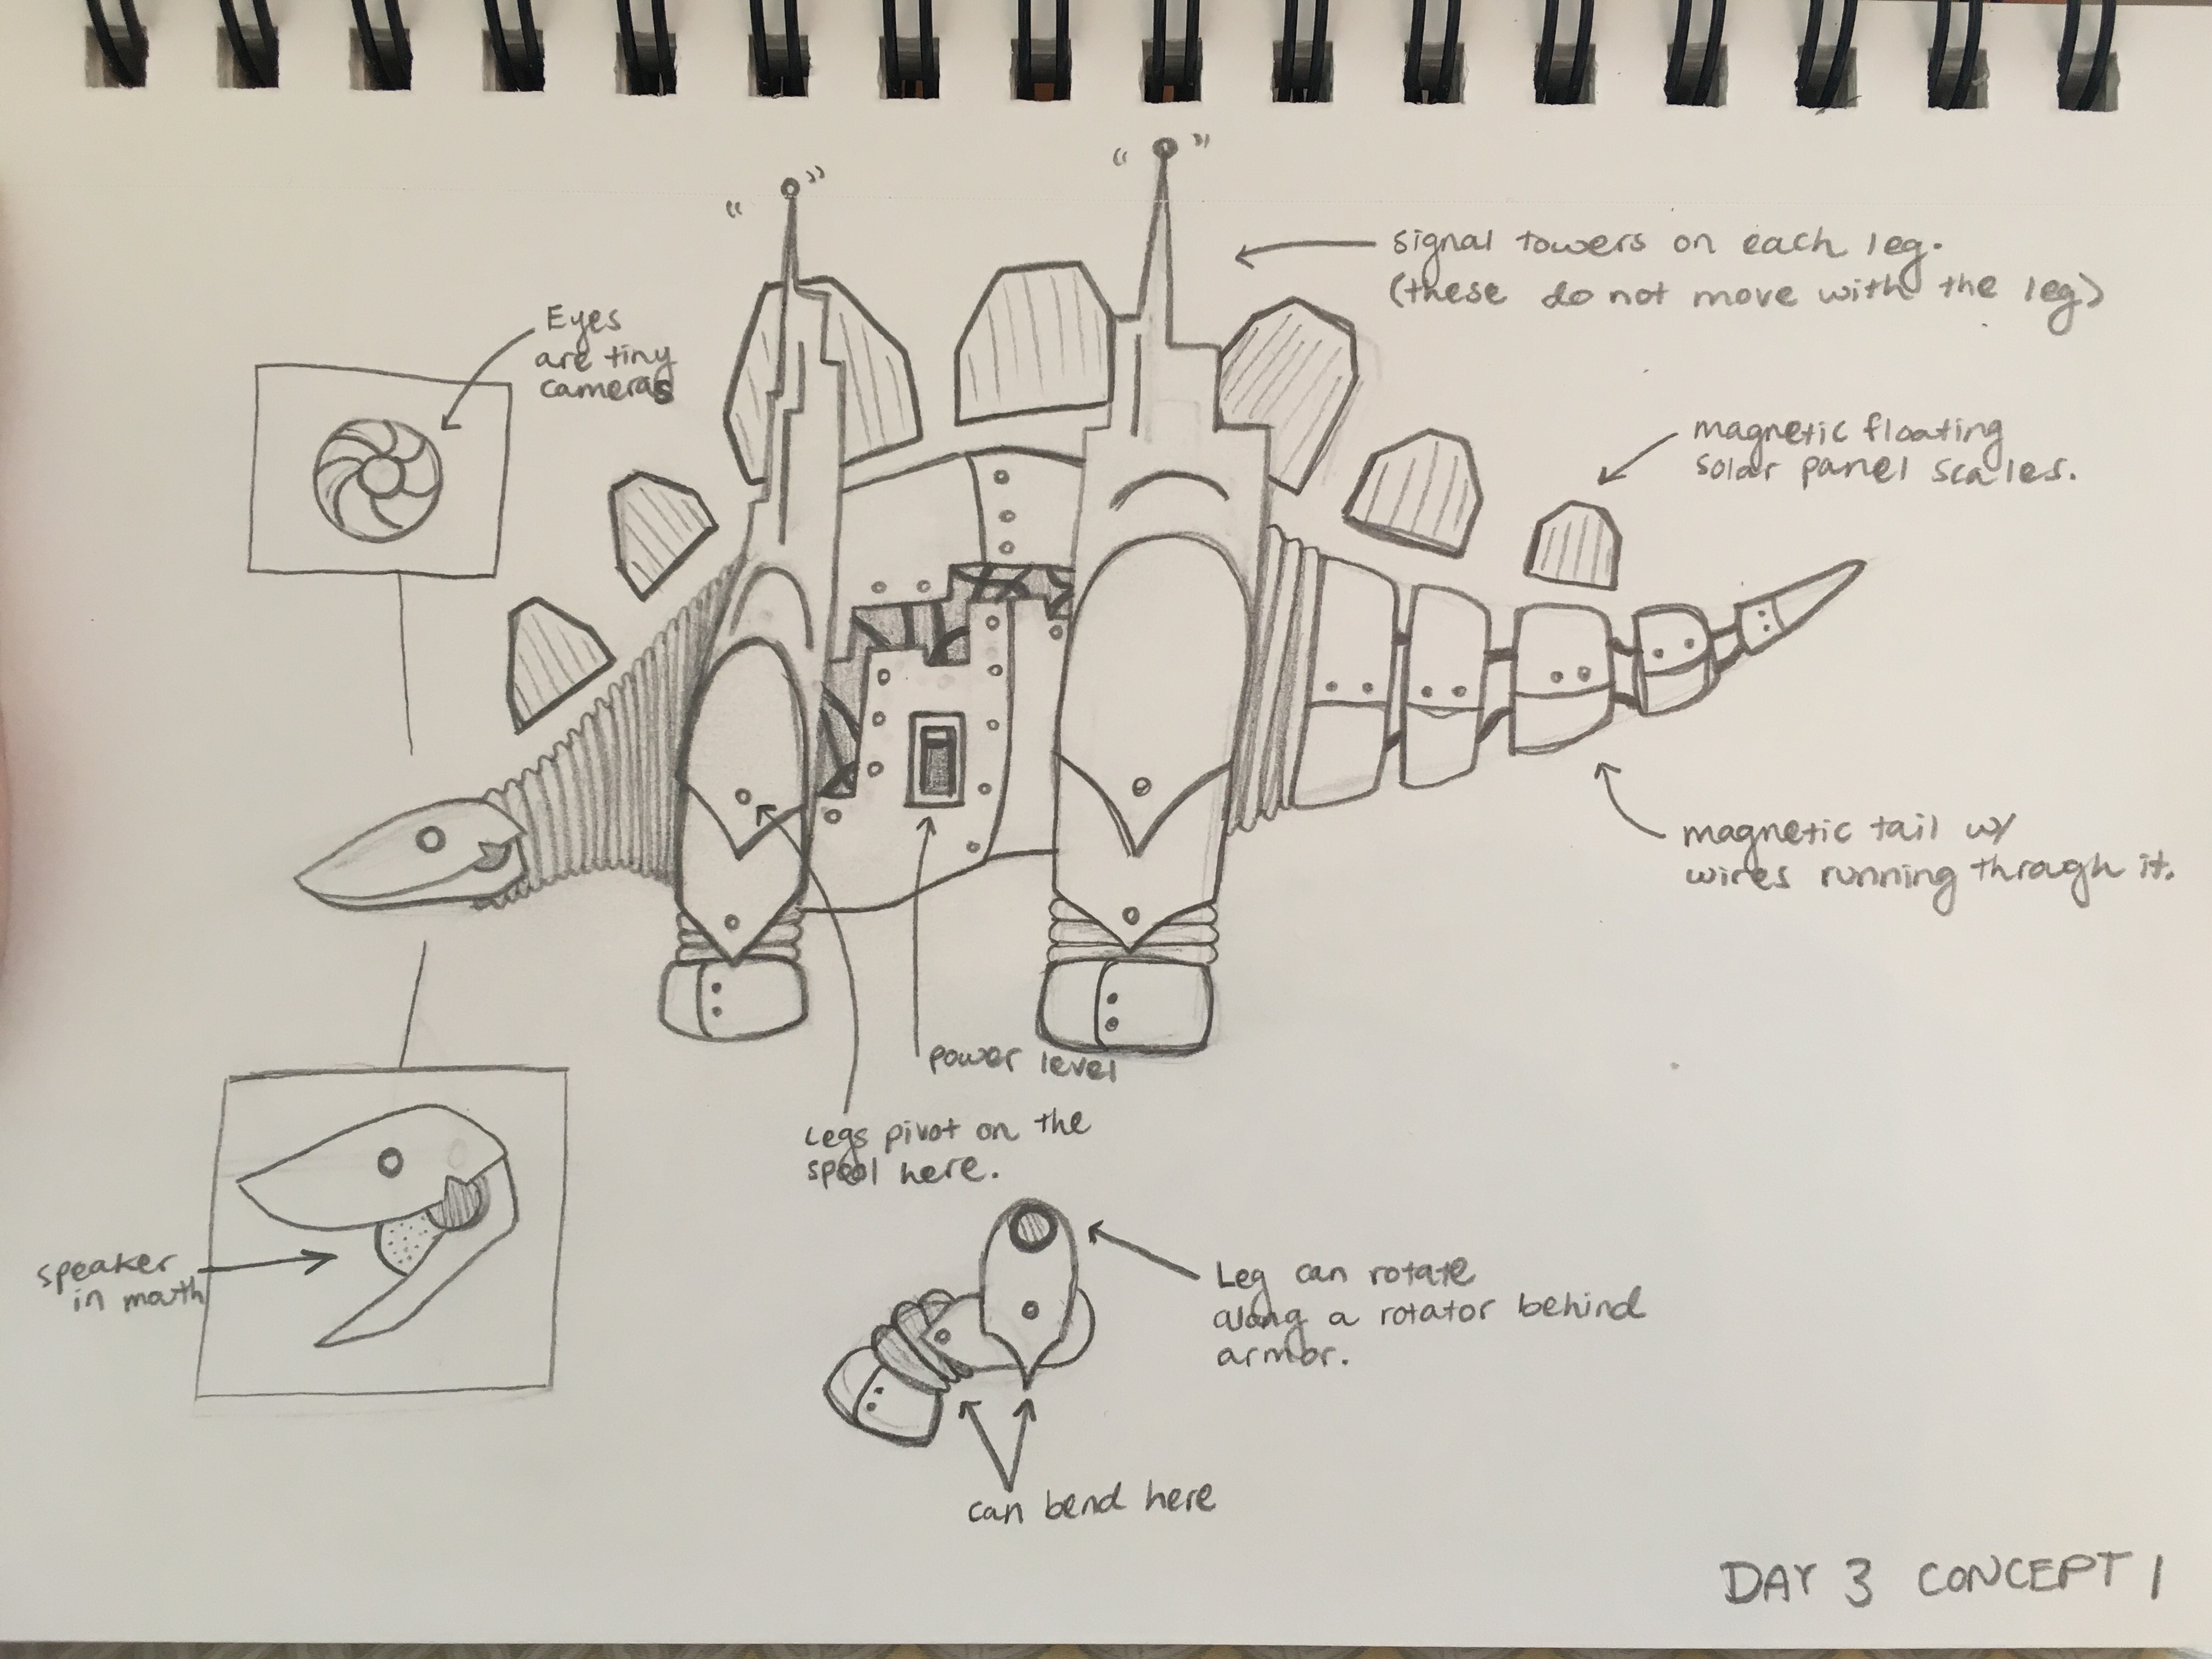 signal towers on each leg.
(these do not move with the leg)
Eyes
are tiny
cameras
magnetic floating
solar panel scales.
magnetic tail w/
wires running through it.
power level
Legs pivot on the
spool here.
speaker
in mouth
Leg can rotate
along a rotator behind
armor.
can bend here
DAY 3 CONCEPT 1